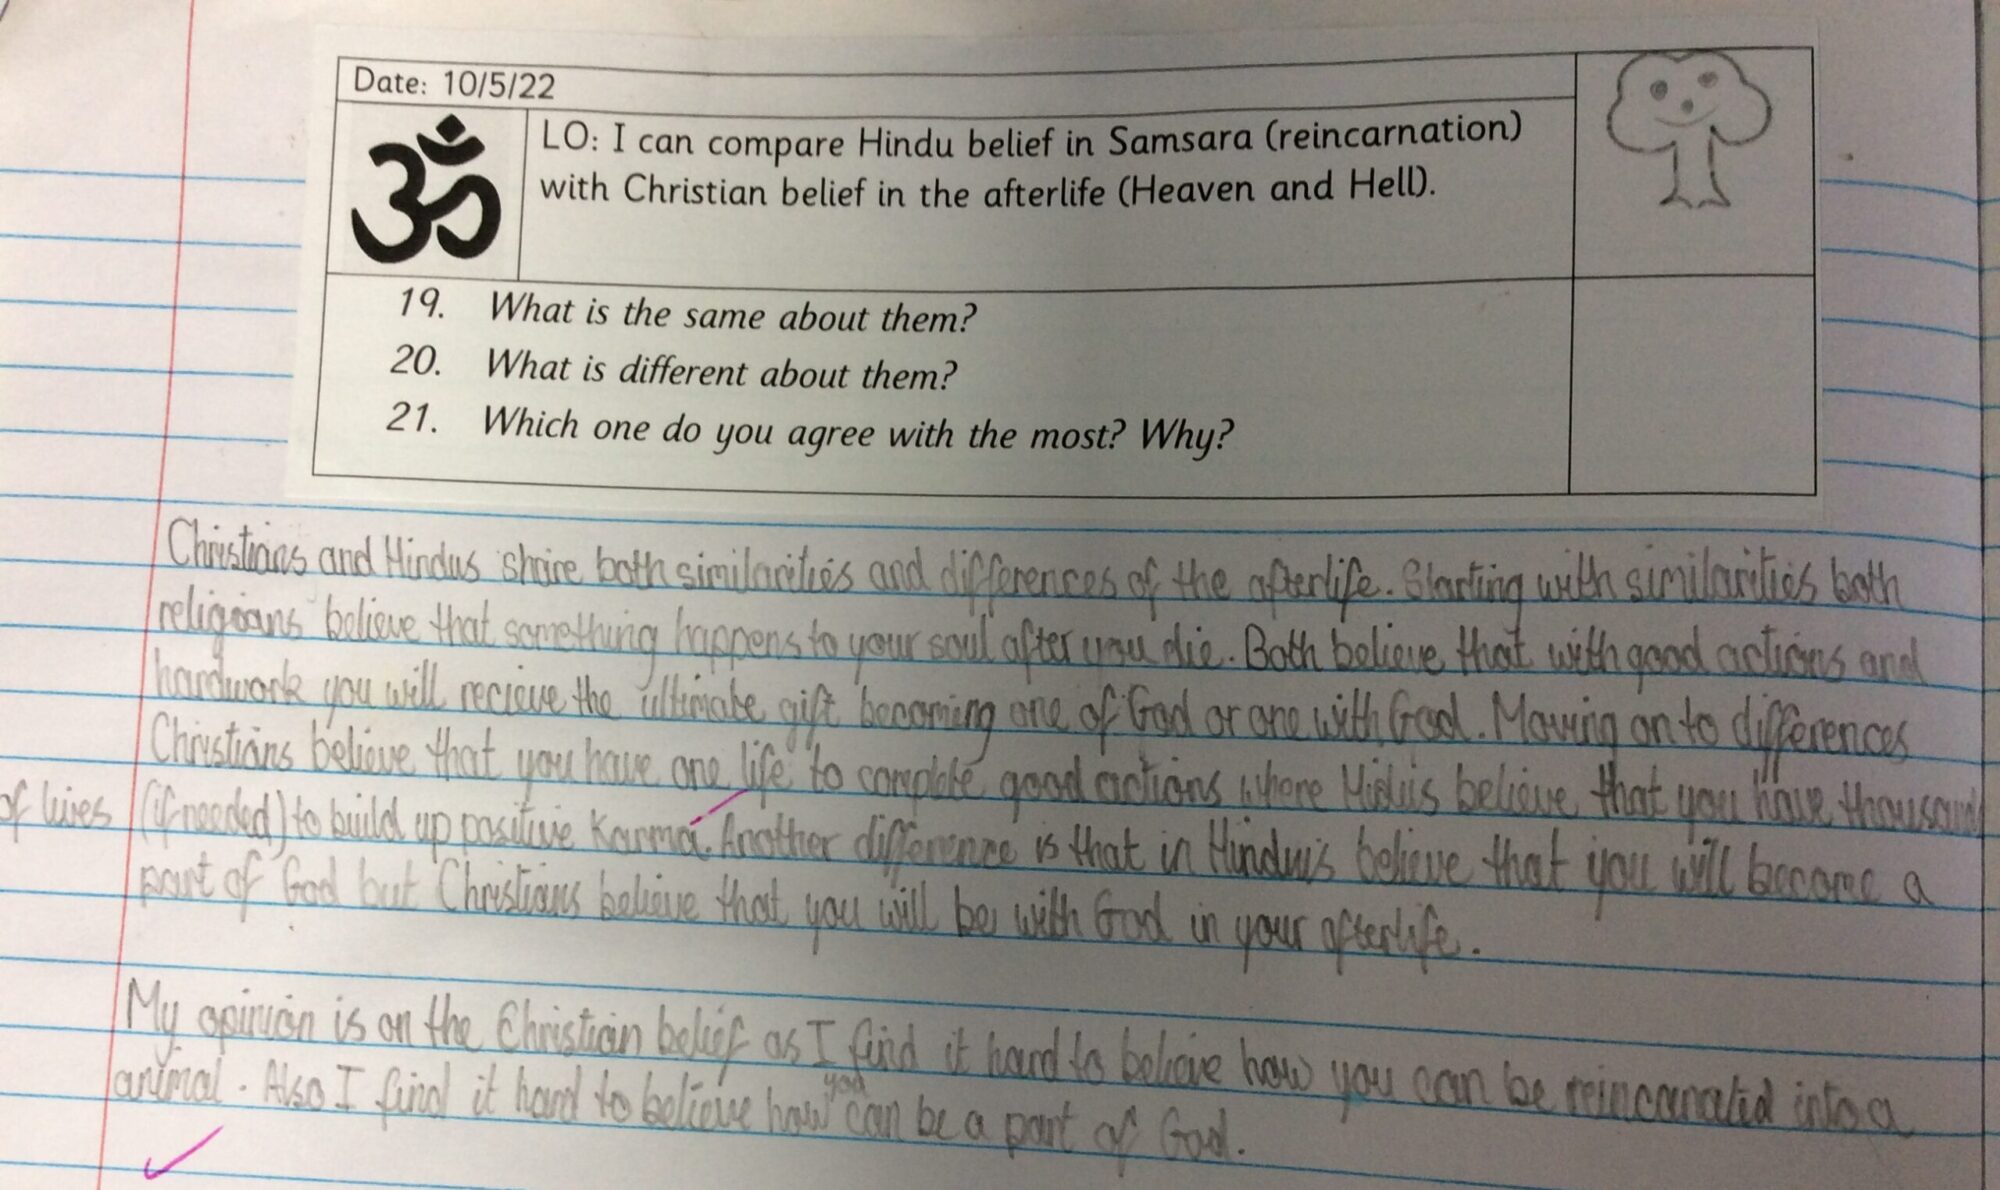 Date: 10/5/22
ॐ
LO: I can compare Hindu belief in Samsara (reincarnation)
with Christian belief in the afterlife (Heaven and Hell).
19. What is the same about them?
20. What is different about them?
21. Which one do you agree with the most? Why?
Christians and Hindus share both similarities and differences of the afterlife. Starting with similarities both
religions believe that something happens to your soul after you die. Both believe that with good actions and
hardwork you will recieve the ultimate gift becoming one of God or one with God. Moving on to differences
Christians believe that you have one life to complete good actions where believe that you have thousand
of lives (if needed) to build up positive Karma. Another difference is that in believe that you will become a
part of God but Christians believe that you will be with God in your afterlife.
My opinion is on the Christian belief as I find it hard to believe how you can be reincarnated into a
animal. Also I find it hard to believe how you can be a part of God.